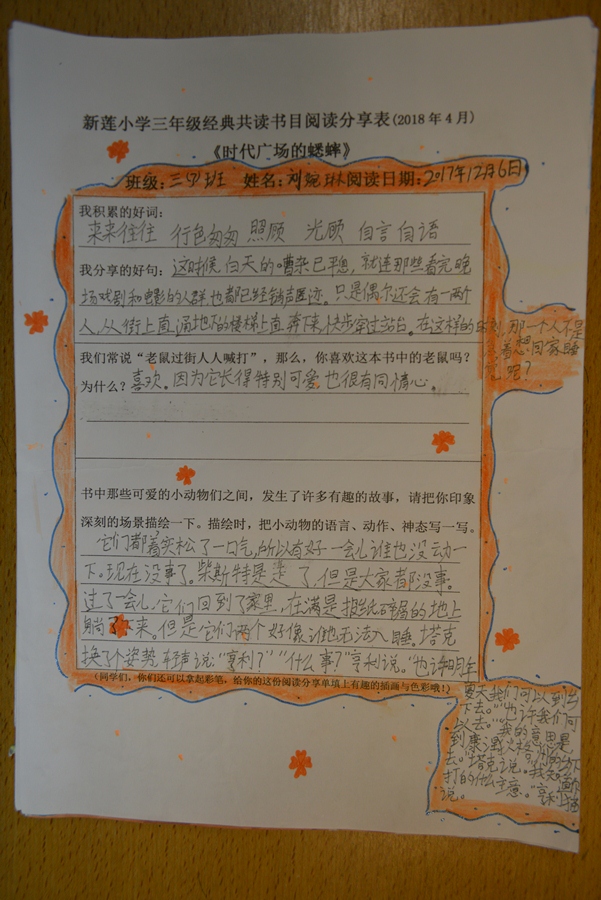 新莲小学三年级经典共读书目阅读分享表(2018年4月)
《时代广场的蟋蟀》
班级:三(2)班 姓名:刘婉琳阅读日期:2017年12月6日
我积累的好词:
来来往往 行色匆匆 照顾 光顾 自言自语
我分享的好句:这时候,白天的嘈杂已平息,就连那些看完晚
场戏剧和电影的人群也都已经销声匿迹。只是偶尔还会有一两个
人,从街上直通地下的楼梯上直奔下来,快步穿过站台。在这样的时刻,那一个人不是
着想回家睡
呢?
我们常说“老鼠过街人人喊打”,那么,你喜欢这本书中的老鼠吗?
为什么?喜欢。因为它长得特别可爱也很有同情心。
书中那些可爱的小动物们之间,发生了许多有趣的故事,请把你印象
深刻的场景描绘一下。描绘时,把小动物的语言、动作、神态写一写。
它们都着实松了一口气,所以有好一会儿谁也没动一
下。现在没事了。柴斯特是走了,但是大家都没事。
过了一会儿,它们回到了家里,在满是报纸碎屑的地上
躺了下来。但是它们两个好像谁也无法入睡。塔克
换了个姿势,轻声说:“亨利?”“什么事?”亨利说。“也许明年
(同学们,你们还可以拿起彩笔,给你的这份阅读分享单填上有趣的插画与色彩哦!)
夏天我们可以到乡
下去。”“也许我们可
以去。”“我的意思是
到康涅狄格
去。”塔克说。“我知道你
打的什么主意。”亨利猫
说。